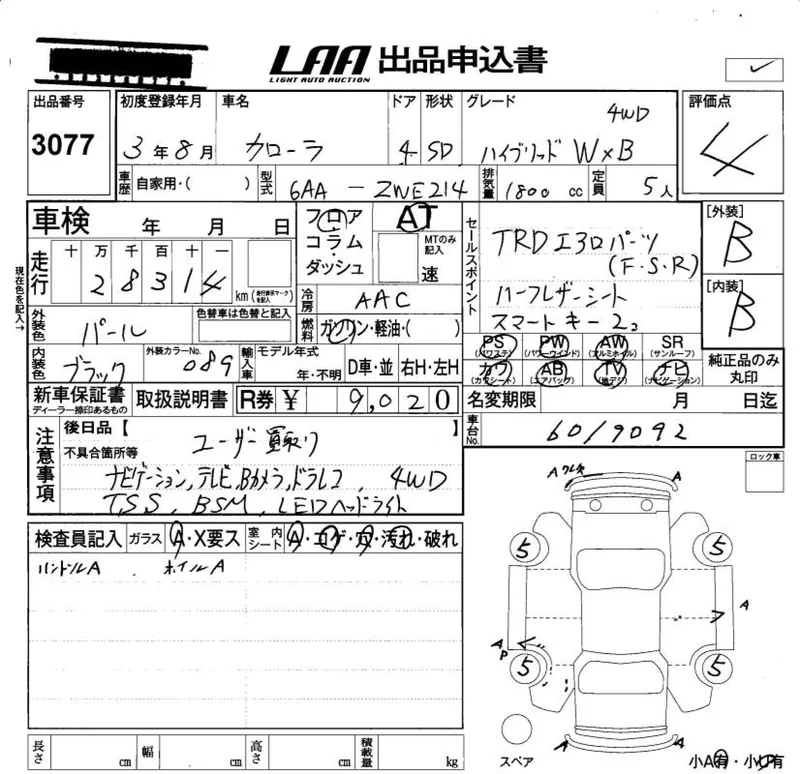 LAA 出品申込書
LIGHT AUTO AUCTION
出品番号 初度登録年月 車名 ドア 形状 グレード 評価点
3077 3年8月 カローラ 4 SD ハイブリッド W×B 4WD 4
車歴 自家用・( ) 型式 6AA - ZWE214 排気量 1800 cc 定員 5人
車検 年 月 日 フロア AT セールスポイント [外装]
コラム MTのみ記入 TRDエアロパーツ B
ダッシュ 速 (F.S.R)
走行 十 万 千 百 十 一
28314 km (走行表示マークを記入) 冷房 AAC ハーフレザーシート [内装]
現在色を記入→ スマートキー2コ B
外装色 パール 色替車は色替と記入 燃料 ガソリン・軽油・( )
PS (パワステ) PW (パワーウインド) AW (アルミホイル) SR (サンルーフ) 純正品のみ丸印
内装色 ブラック 外装カラーNo. 089 輸入車 モデル年式 年・不明 D車・並 右H・左H カワ (カワシート) AB (エアバッグ) TV (地デジ) ナビ (ナビゲーション)
新車保証書 ディーラー捺印あるもの 取扱説明書 R券 ¥ 9,020 名変期限 月 日迄
車台No. 6019092
注意事項 後日品【 】
ユーザー買取り
不具合箇所等
ナビゲーション,テレビ,Bカメラ,ドラレコ 4WD
TSS, BSM, LEDヘッドライト
ロック車
検査員記入 ガラス A・X要ス 室内シート A・コゲ・穴・汚れ・破れ
ハンドルA ホイルA
A A
5 5
A
A
P
5 5
A A
スペア
小A有・小凹有
長さ cm 幅 cm 高さ cm 積載量 kg